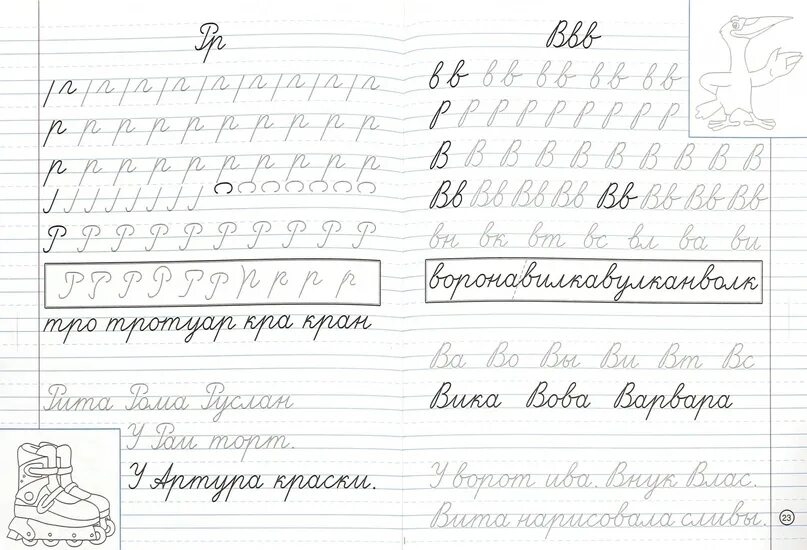 Рр
р р р р р р р р р р р
р р р р р р р р р р р
Р Р Р Р Р Р Р Р Р Р
Р Р Р Р Р Р р р р р
тро тротуар кра кран
Рита Рома Руслан
У Раи торт.
У Артура краски.
Ввв
вв вв вв вв вв
Р Р Р Р Р Р Р Р Р
В В В В В В В В В В
Вв Вв Вв Вв Вв Вв Вв Вв
вн вк вт вс вл ва ви
воронавилкавулканволк
Ва Во Вы Ви Вт Вс
Вика Вова Варвара
У ворот ива. Внук Влас.
Вита нарисовала сливы.
23